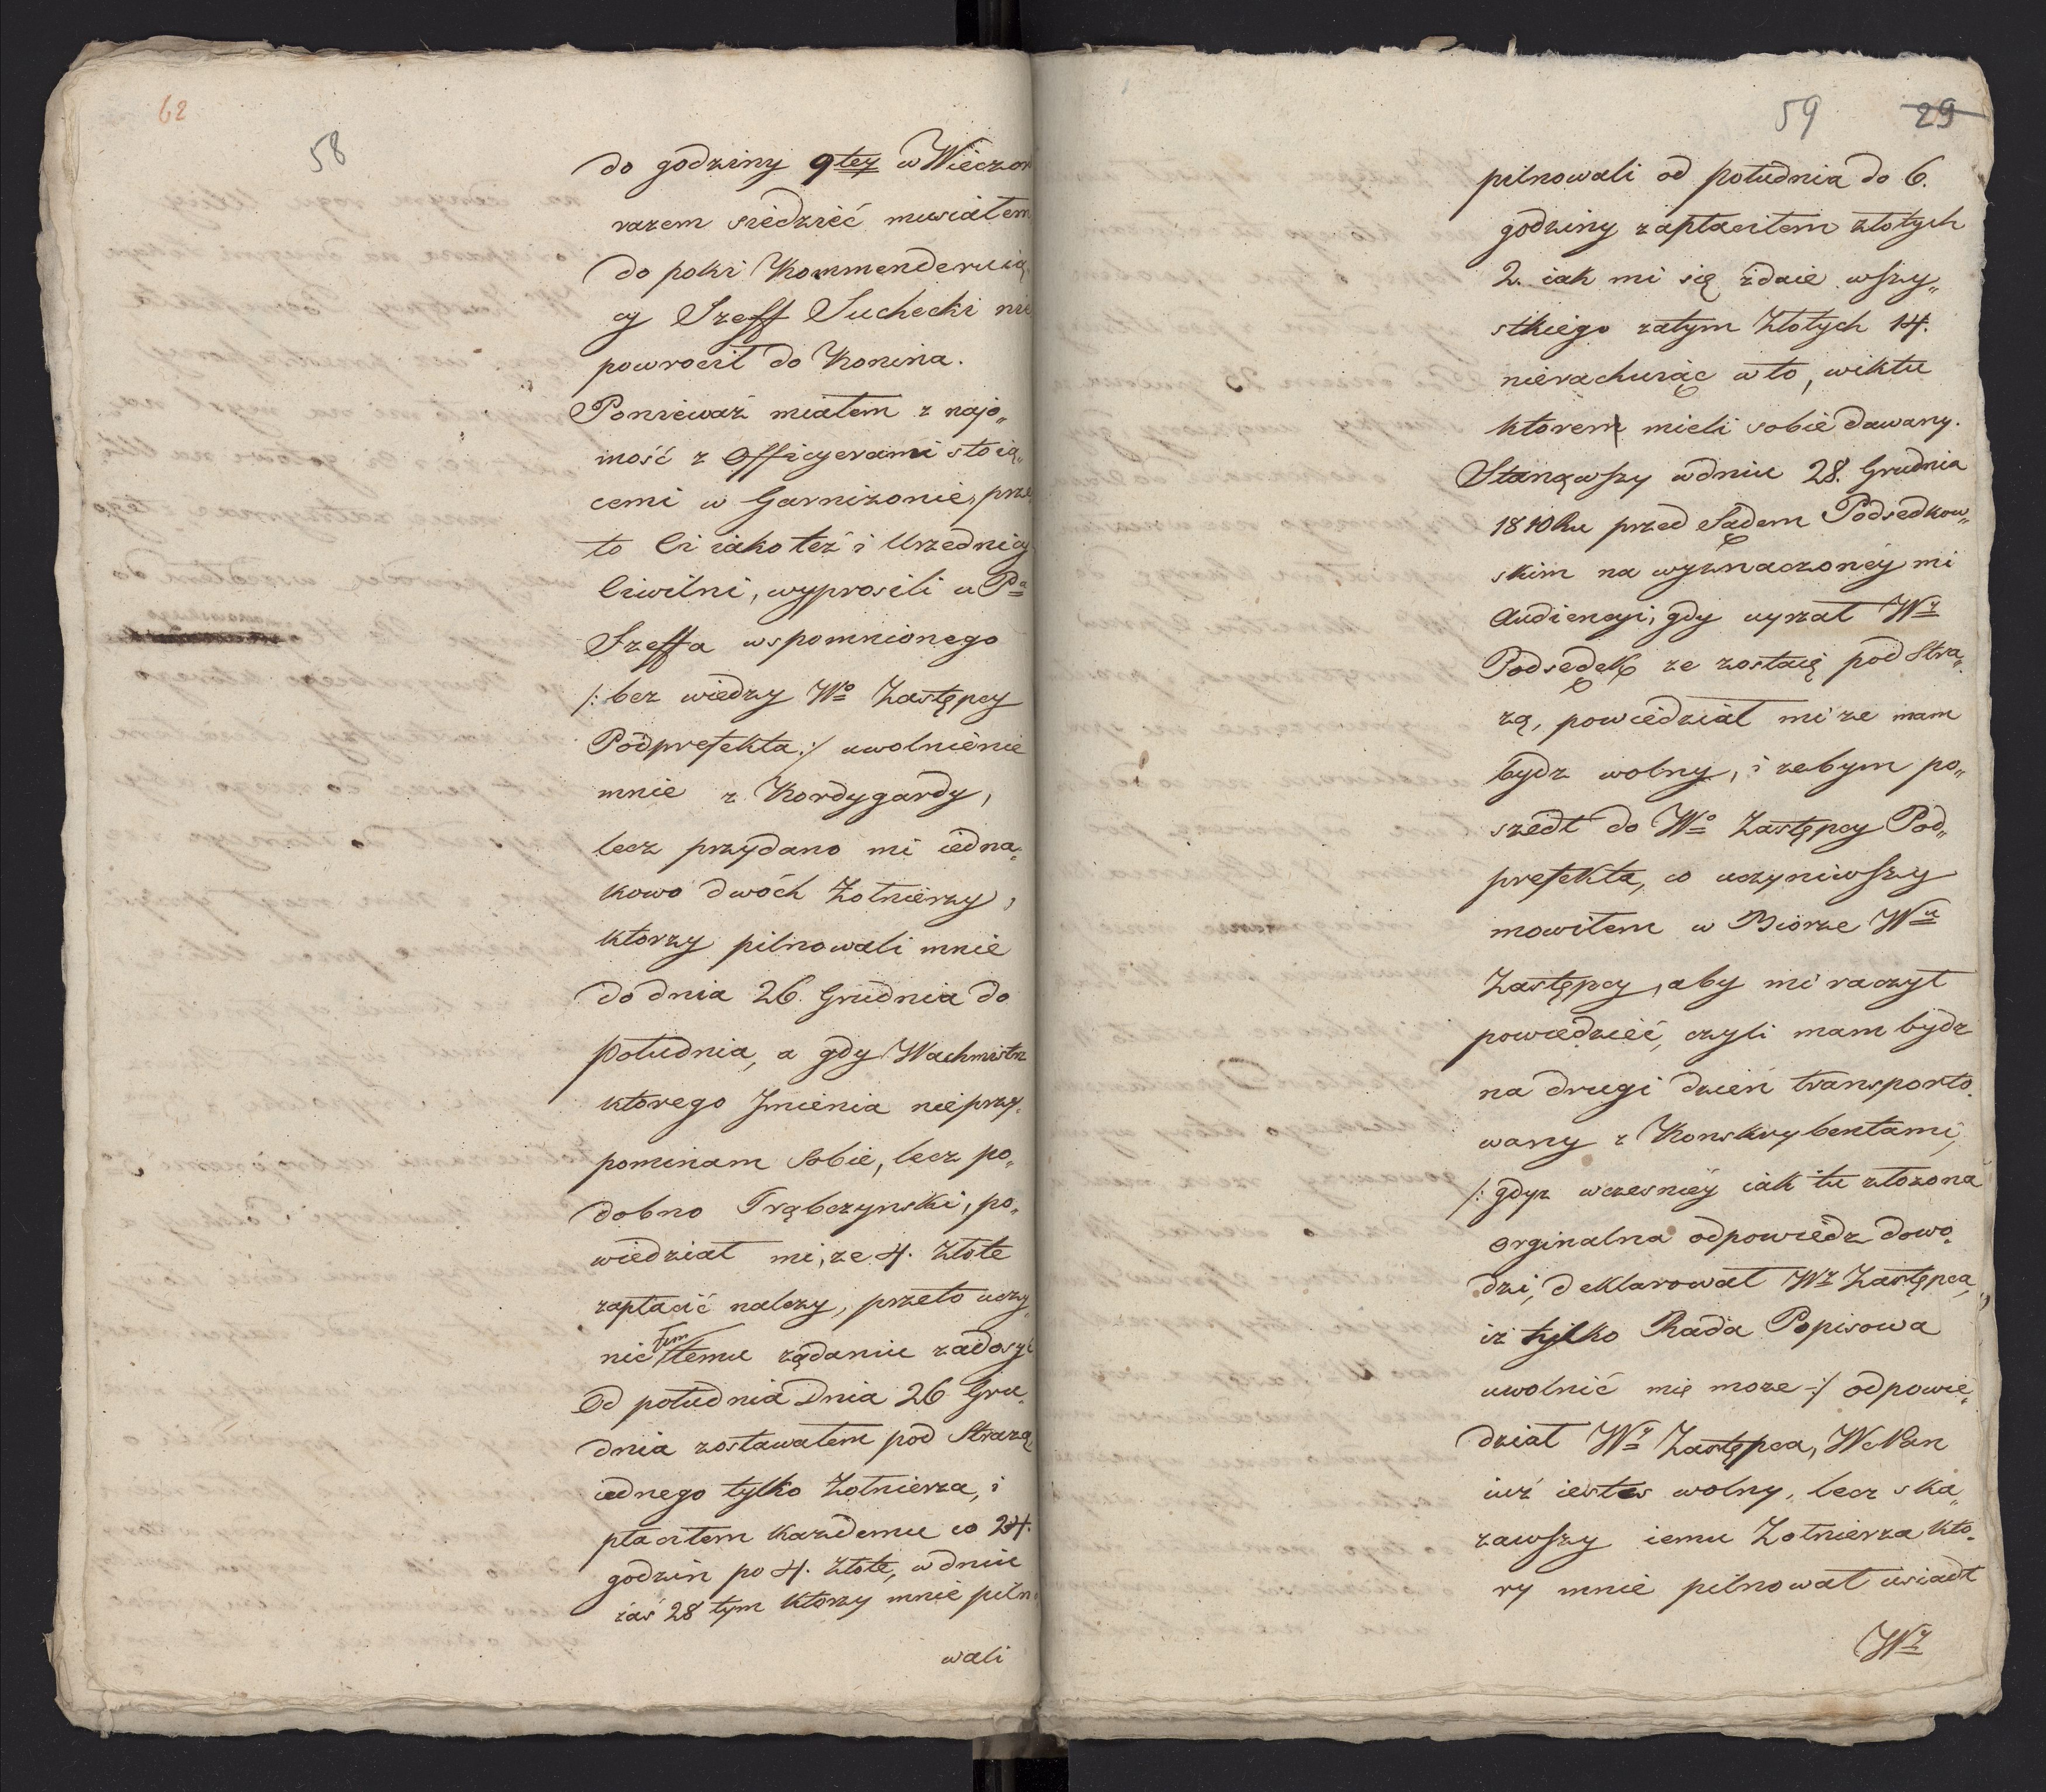 62
58
do godziny 9tey w Wieczor
razem siedzieć musiałem
do poki Kommenderuią„
cy Szeff Suchecki nie
powrocił do Konina.
Ponieważ miałem znajo„
mość z Officyerami stoią„
cemi w Garnizonie, prze
to Ci iako też i Urzednicy
Ciwilni, wyprosili u Pa
Szeffa wspomnionego
/: bez wiedzy Wo Zastępcy
Podprefekta :/ uwolnienie
mnie z Kordygardy,
lecz przydano mi iedna„
kowo dwóch Zołnierzy,
ktorzy pilnowali mnie
do dnia 26. Grudnia do
południa, a gdy Wachmistrz
ktorego Jmienia nieprzy„
pominam sobie, lecz po„
dobno Trąbczynski, po„
wiedział mi, ze 4. złote
zapłacić nalezy, przeto uczy„
niłem temu ządaniu zadosyć
Od południa Dnia 26 Gru„
dnia zostawałem pod Strazą
iednego tylko Zołnierza, i
płaciłem kazdemu co 24.
godzin po 4. złote, w dniu
zaś 28 tym ktorzy mnie pilno
wali
59 29
pilnowali od południa do 6.
godziny zapłaciłem złotych
2. iak mi się zdaie wszy„
stkiego zatym Złotych 14.
nierachuiąc w to, wiktu
ktoren mieli sobie dawany.
Stanąwszy w dniu 28. Grudnia
1810 Ru przed Sądem Podsedkow„
skim na wyznaczoney mi
Audiencyi, gdy uyrzał Wy
Podsędek ze zostaię pod Stra„
zą, powiedział mi ze mam
bydz wolny, i zebym po„
szedł do Wo Zastępcy Pod„
prefekta, co uczyniwszy
mowiłem w Biorze Wu
Zastępcy, aby mi raczył
powiedzieć, czyli mam bydz
na drugi dzień transporto„
wany z Konskrybentami,
/: gdyz wczesniey iak tu złozona
orginalna odpowiedz dowo„
dzi, deklarował Wy Zastępca,
iz tylko Rada Popisowa
uwolnić mię moze :/ odpowie„
dział Wy Zastępca, WcPan
iuż iesteś wolny, lecz ska„
zawszy iemu Zołnierza kto„
ry mnie pilnował usiadł
Wy